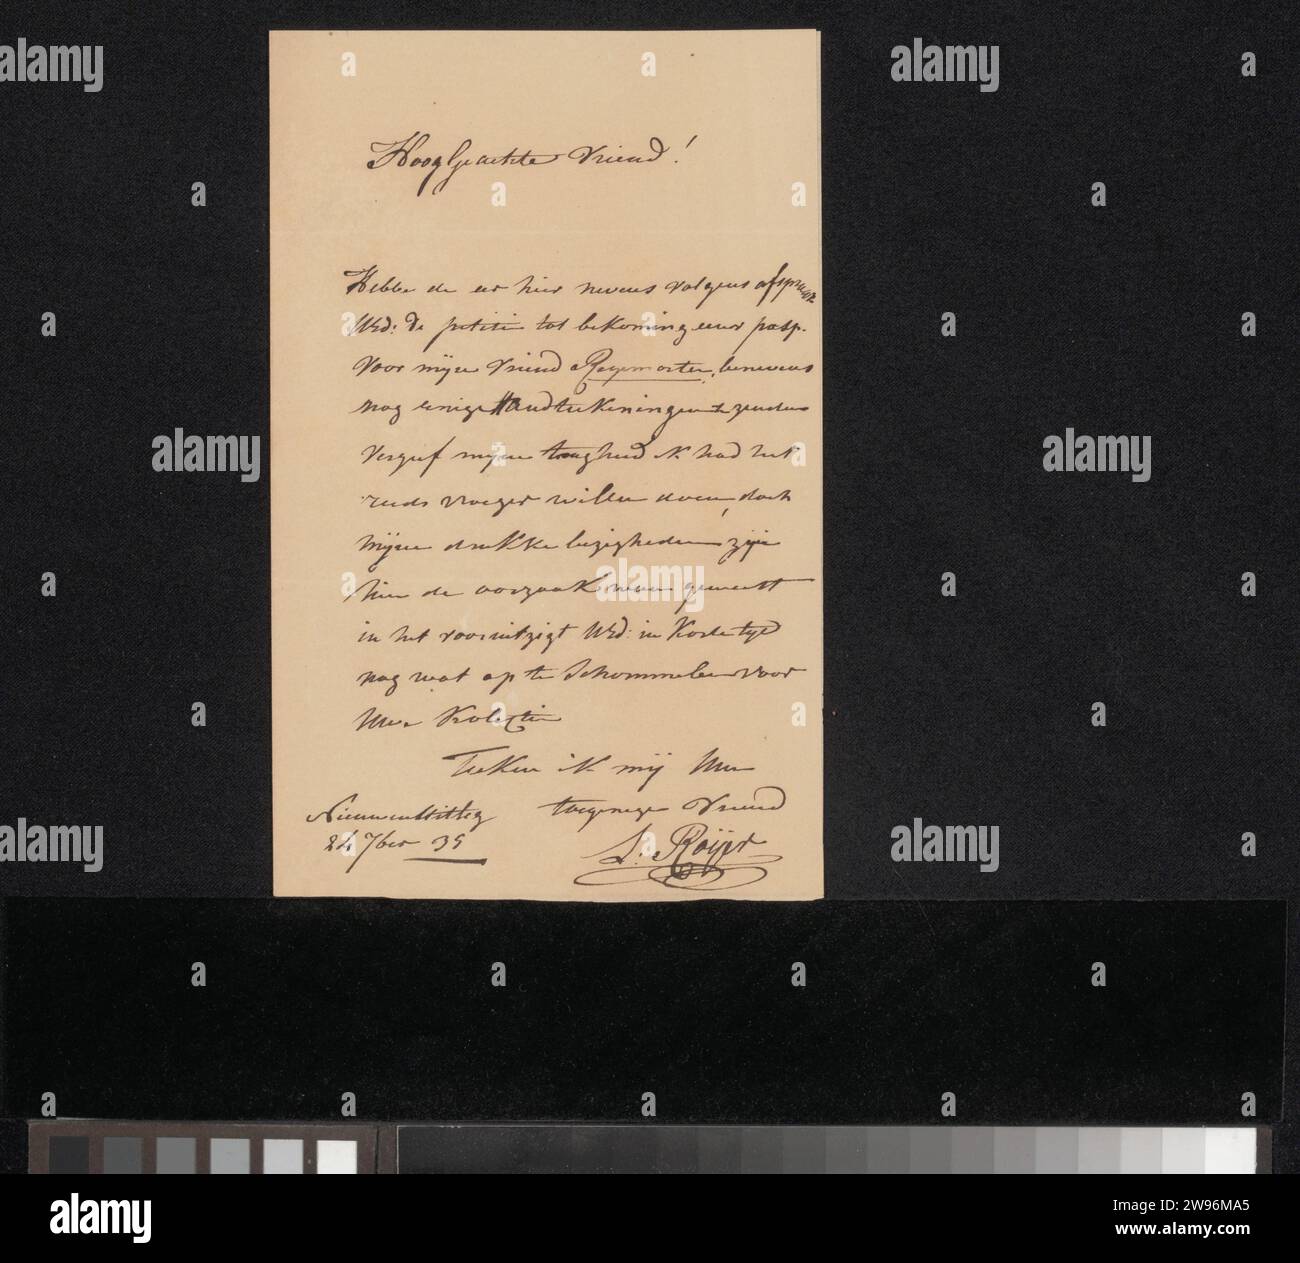 HoogGeachte Vriend!
Hebbe de eer hier nevens volgens afspraak
UEd: de petitie tot bekoming eener pasp.
voor mijne Vriend benevens
nog eenige Handteekeningen te zenden
vergeef mijne traagheid ik had het
reeds vroeger willen doen, doch
mijne drukke bezigheden zijn
hier de oorzaak van geweest
in het vooruitzigt UEd: in korte tijd
nog wat op te schommelen voor
Uwe Kolextie
Teeken ik mij Uwe
toegenege Vriend
L: Roijer
24 7ber 35
alamy
Image ID: 2W96MA5
www.alamy.com